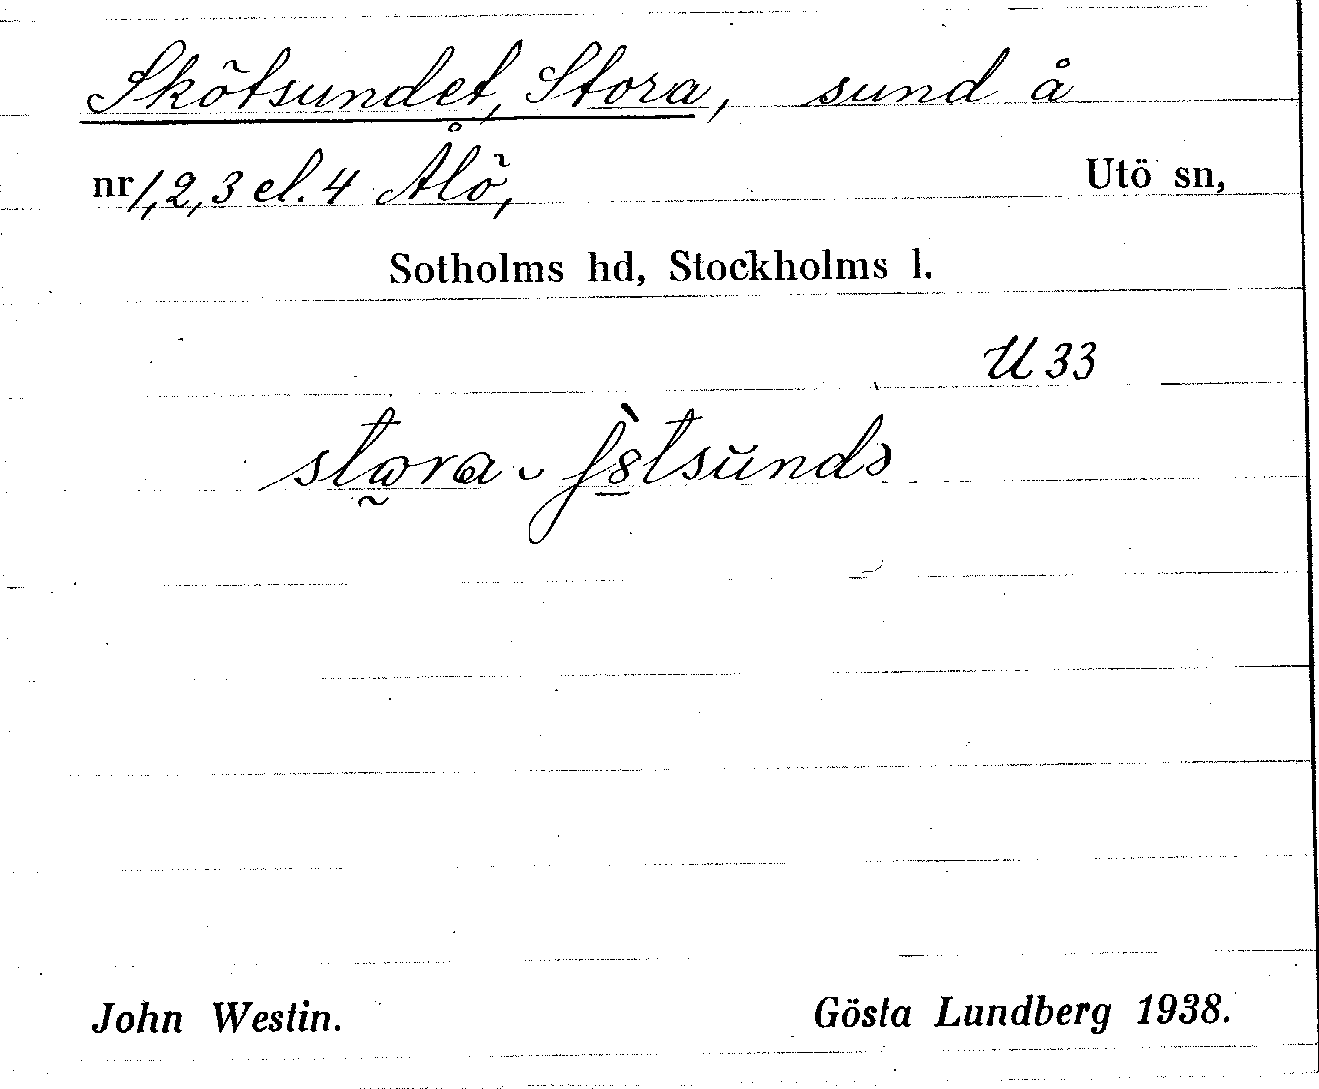 Skötsundet, Stora, sund å
nr 1, 2, 3 el. 4 Ålö, Utö sn,
Sotholms hd, Stockholms l.
U 33
John Westin. Gösta Lundberg 1938.